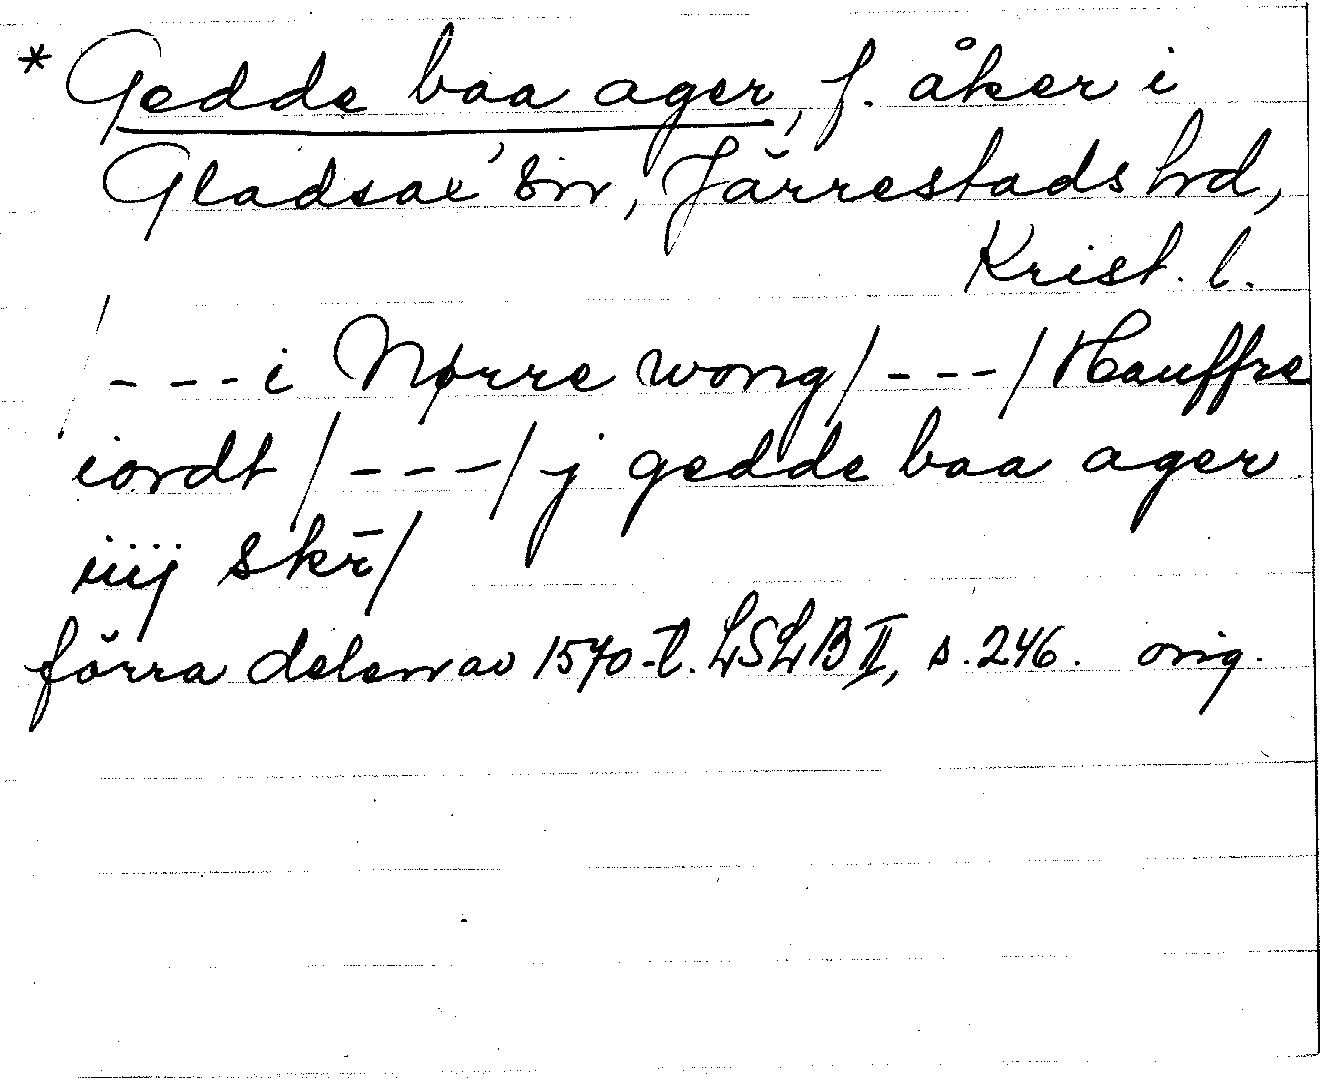 * Gedde baa ager, f. åker i
Gladsax' sn, Järrestads hrd,
Krist. l.
/ - - - i Nørre wong / - - - / Hauffre
iordt / - - - / j gedde baa ager
iiij skr̄ /
förra delen av 1570-t. LSLB II, s. 246. orig.